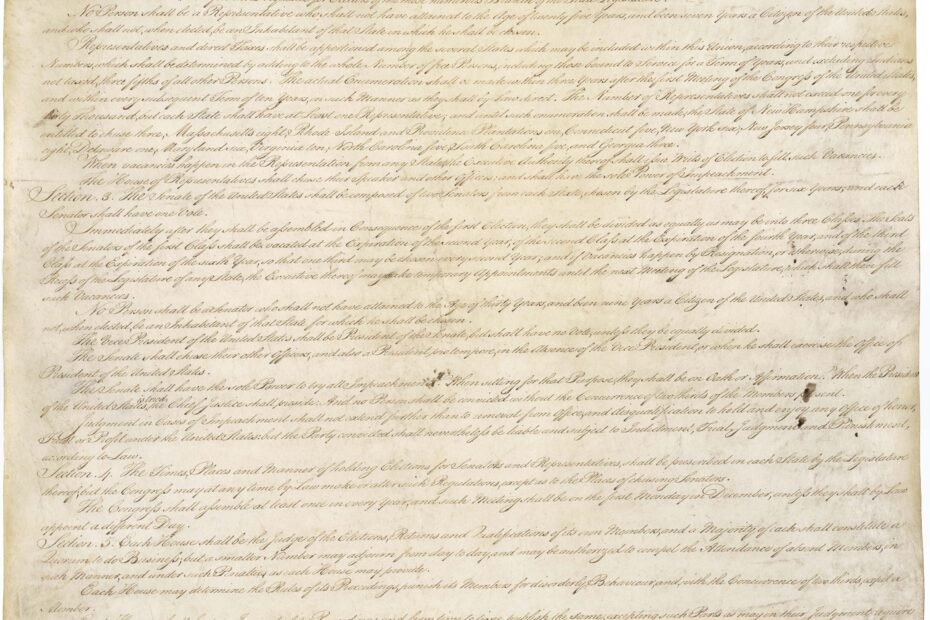 No Person shall be a Representative who shall not have attained to the Age of twenty five Years, and been seven Years a Citizen of the United States,
and who shall not, when elected, be an Inhabitant of that State in which he shall be chosen.
Representatives and direct Taxes shall be apportioned among the several States which may be included within this Union, according to their respective
Numbers, which shall be determined by adding to the whole Number of free Persons, including those bound to Service for a Term of Years, and excluding Indians
not taxed, three fifths of all other Persons. The actual Enumeration shall be made within three Years after the first Meeting of the Congress of the United States,
and within every subsequent Term of ten Years, in such Manner as they shall by Law direct. The Number of Representatives shall not exceed one for every
thirty Thousand, but each State shall have at Least one Representative; and until such enumeration shall be made, the State of New Hampshire shall be
entitled to chuse three, Massachusetts eight, Rhode Island and Providence Plantations one, Connecticut five, New York six, New Jersey four, Pennsylvania
eight, Delaware one, Maryland six, Virginia ten, North Carolina five, South Carolina five, and Georgia three.
When vacancies happen in the Representation from any State, the Executive Authority thereof shall issue Writs of Election to fill such Vacancies.
The House of Representatives shall chuse their Speaker and other Officers; and shall have the sole Power of Impeachment.
Section. 3. The Senate of the United States shall be composed of two Senators from each State, chosen by the Legislature thereof, for six Years; and each
Senator shall have one Vote.
Immediately after they shall be assembled in Consequence of the first Election, they shall be divided as equally as may be into three Classes. The Seats
of the Senators of the first Class shall be vacated at the Expiration of the second Year, of the second Class at the Expiration of the fourth Year, and of the third
Class at the Expiration of the sixth Year, so that one third may be chosen every second Year; and if Vacancies happen by Resignation, or otherwise, during the
Recess of the Legislature of any State, the Executive thereof may make temporary Appointments until the next Meeting of the Legislature, which shall then fill
such Vacancies.
No Person shall be a Senator who shall not have attained to the Age of thirty Years, and been nine Years a Citizen of the United States, and who shall
not, when elected, be an Inhabitant of that State for which he shall be chosen.
The Vice President of the United States shall be President of the Senate, but shall have no Vote, unless they be equally divided.
The Senate shall chuse their other Officers, and also a President pro tempore, in the Absence of the Vice President, or when he shall exercise the Office of
President of the United States.
The Senate shall have the sole Power to try all Impeachments. When sitting for that Purpose, they shall be on Oath or Affirmation. When the President
of the United States is tried, the Chief Justice shall preside: And no Person shall be convicted without the Concurrence of two thirds of the Members present.
Judgment in Cases of Impeachment shall not extend further than to removal from Office, and disqualification to hold and enjoy any Office of honor,
Trust or Profit under the United States: but the Party convicted shall nevertheless be liable and subject to Indictment, Trial, Judgment and Punishment,
according to Law.
Section. 4. The Times, Places and Manner of holding Elections for Senators and Representatives, shall be prescribed in each State by the Legislature
thereof; but the Congress may at any time by Law make or alter such Regulations, except as to the Places of chusing Senators.
The Congress shall assemble at least once in every Year, and such Meeting shall be on the first Monday in December, unless they shall by Law
appoint a different Day.
Section. 5. Each House shall be the Judge of the Elections, Returns and Qualifications of its own Members, and a Majority of each shall constitute a
Quorum to do Business; but a smaller Number may adjourn from day to day, and may be authorized to compel the Attendance of absent Members, in
such Manner, and under such Penalties as each House may provide.
Each House may determine the Rules of its Proceedings, punish its Members for disorderly Behaviour, and, with the Concurrence of two thirds, expel a
Member.
and from time to time publish the same, excepting such Parts as may in their Judgment require